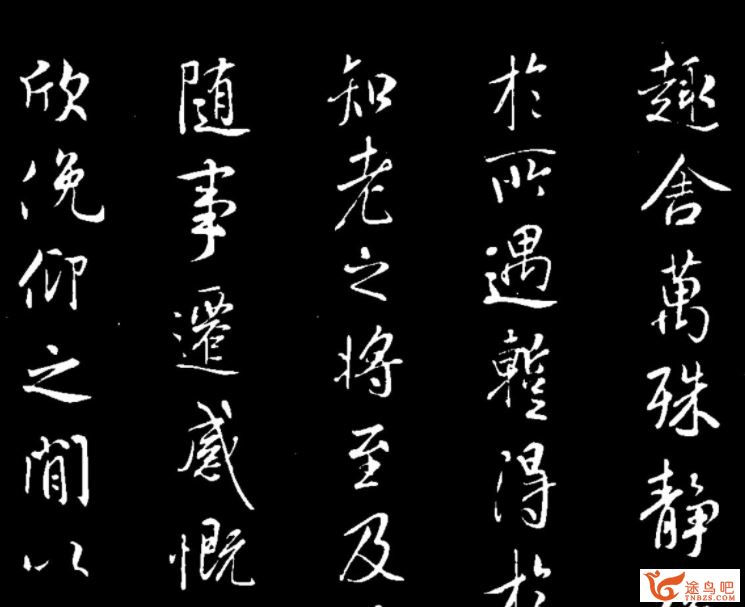 趣舍萬殊静
於所遇暫得
知老之將至及
随事遷感慨
欣俛仰之閒以
途鸟吧
TNBZS.COM